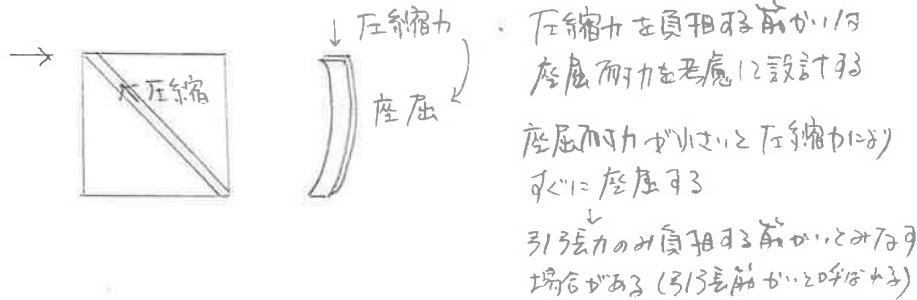 圧縮
圧縮力
座屈
・圧縮力を負担する筋かいは
座屈耐力を考慮して設計する
座屈耐力が小さいと圧縮力により
すぐに座屈する
引張力のみ負担する筋かいとみなす
場合がある(引張筋かいと呼ばれる)